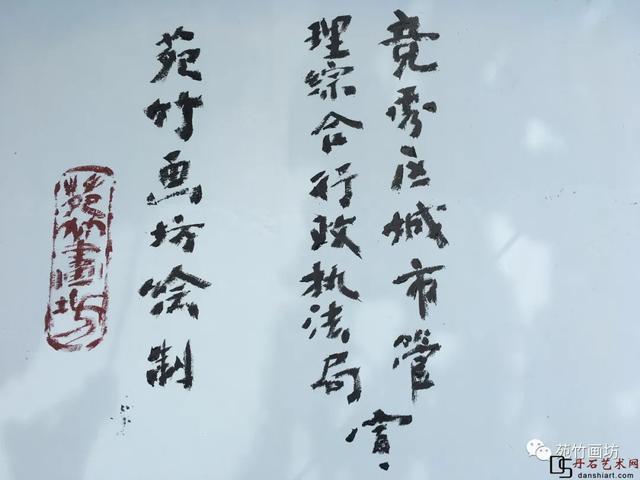 竞秀区城市管
理综合行政执法局
宣
苑竹画坊绘制
苑竹畫坊
苑竹画坊
DS 丹石艺术网
danshiart.com